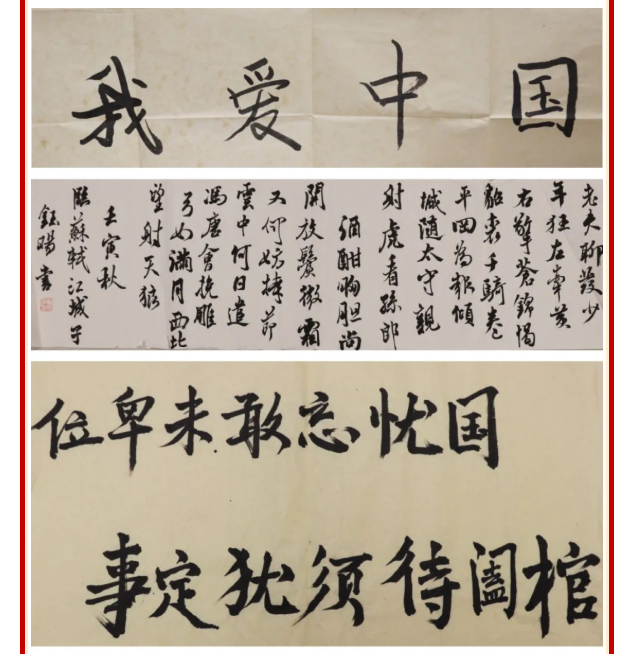 我爱中国
老夫聊發少
年狂左牽黃
右擎蒼錦帽
貂裘千騎卷
平岡為報傾
城隨太守親
射虎看孫郎
酒酣胸胆尚
開放鬢微霜
又何妨持節
雲中何日遣
馮唐會挽雕
弓如滿月西北
望射天狼
壬寅秋
臨蘇軾江城子
鈺暘書
位卑未敢忘忧国
事定犹须待阖棺